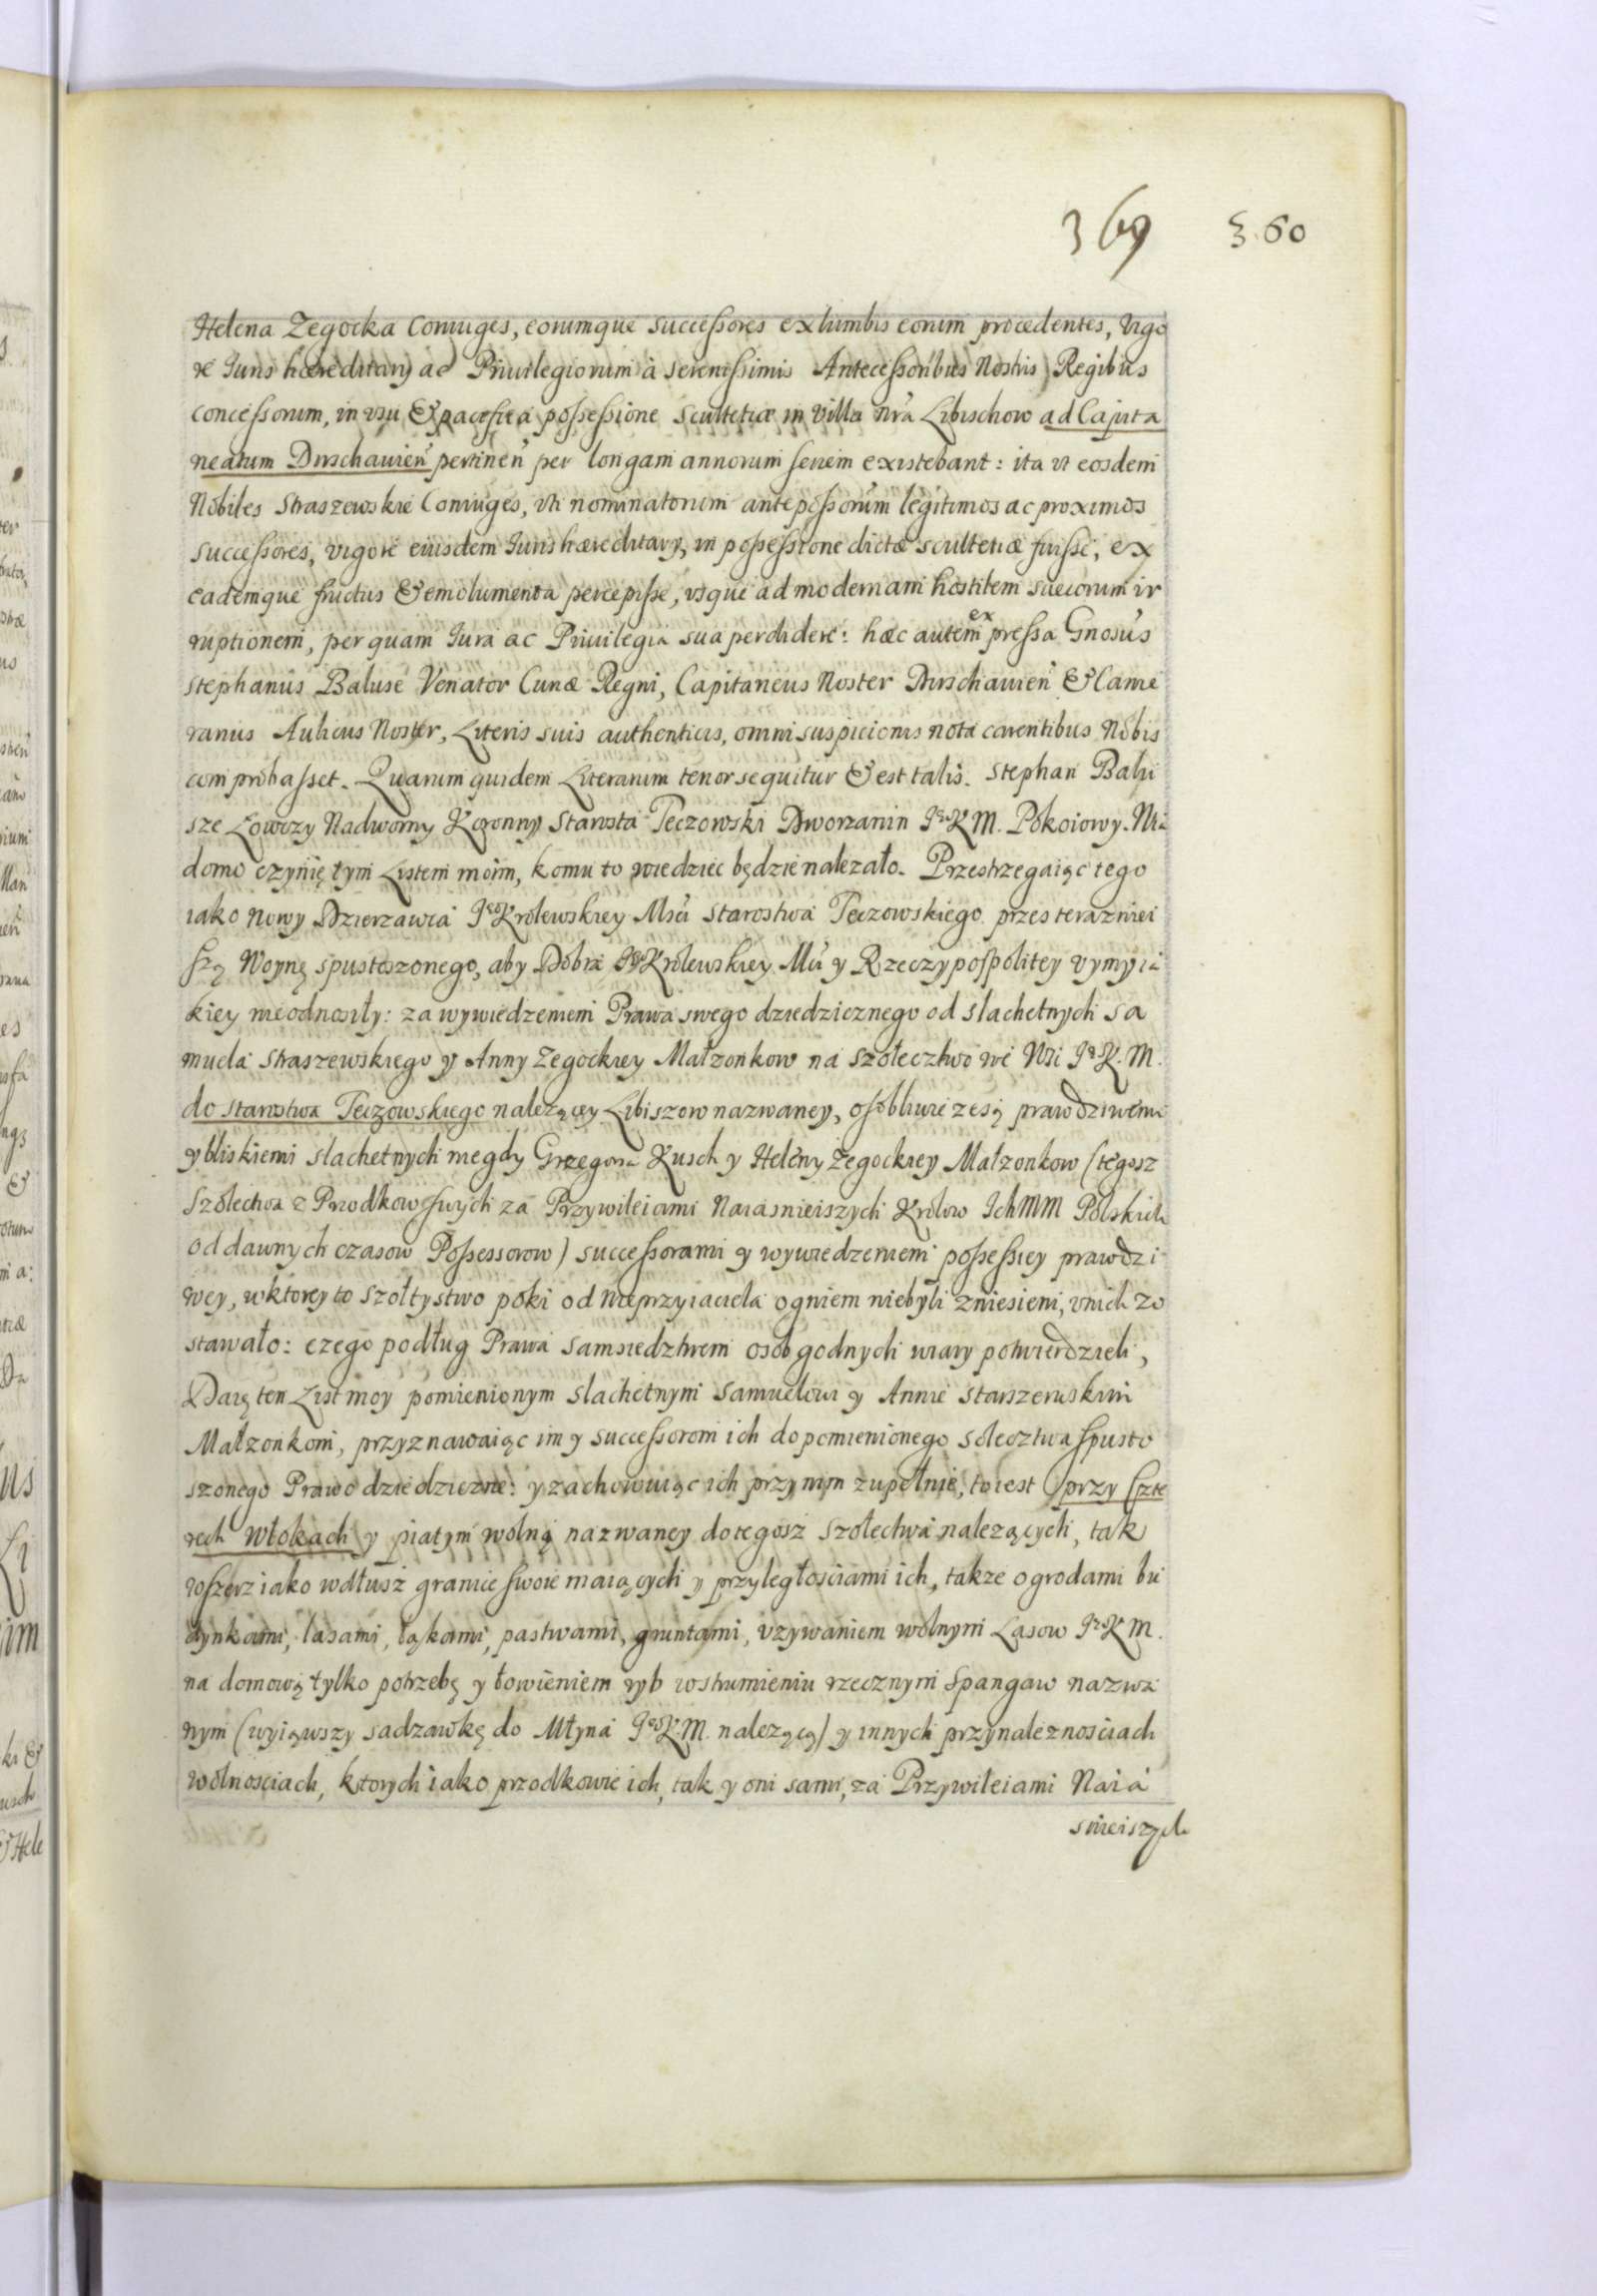 369 360
Helena Zegocka Coniuges, eorumque successores ex lumbis eorum procedentes, vigo
re Iuris hæreditarij ac Priuilegiorum à serenissimis Antecessoribus Nostris Regibus
concessorum, in vsu & pacifica possessione scultetiæ in villa nrã Libischow ad Capita
neatum Dirschauień pertineń per longam annorum seriem existebant: ita vt eosdem
Nobiles Straszewskie Coniuges, vti nominatorum antepossorum legitimos ac proximos
successores, vigore eiusdem Iuris hæreditarij, in possessione dictæ scultetiæ fuisse, ex
eademque fructus & emolumenta percepisse, vsque ad modernam hostilem suecorum ir
ruptionem, per quam Iura ac Priuilegia sua perdidere: hæc autem expressa Gnosus
Stephanus Baluse Venator Curiæ Regni, Capitaneus Noster Dirschauień & Came
rarius Aulicus Noster, Literis suis authenticis, omni suspicionis nota carentibus Nobis
comprobasset. Quarum quidem Literarum tenor sequitur & est talis. Stephan Balu
sze Łowczy Nadworny Koronny Starosta Teczowski Dworzanin J.K.M. Pokoiowy. Wia
domo czynię tym Listem moim, komu to wiedziec będzie nalezało. Przestrzegaiąc tego
iako nowy Dzierzawca J.Krolewskiey Msći Starostwa Teczowskiego przes terazniei
szą Woynę spustoszonego, aby Dobra J.Krolewskiey Mći y Rzeczypospolitey vymy ia
kiey nieodnosiły: za wywiedzeniem Prawa swego dziedzicznego od slachetnych Sa
muela Straszewskiego y Anny Zegockiey Małzonkow na szołecztwo we Wsi J.K.M.
do starostwa Teczowskiego nalezącey Libiszow nazwaney, osobliwie ze są prawdziwemi
y bliskiemi slachetnych niegdy Grzegorza Kusch y Heleny Zegockiey Małzonkow (tegosz
Szolectwa z Przodkow swych za Przywileiami Naiasnieiszych Krolow Ich MM Polskich
od dawnych czasow Possessorow) successorami y wywiedzeniem possessiey prawdzi
wey, w ktorey to szołtystwo poki od Nieprzyiaciela ogniem niebyli zniesieni, v nich zo
stawało: czego podług Prawa samsiedztwem osob godnych wiary potwierdzieli,
Daię ten List moy pomienionym slachetnym Samuelowi y Annie Starszewskim
Małzonkom, przyznawaiąc im y successorom ich do pomienionego solecztwa spusto
szonego Prawo dziedziczne: y zachowuiąc ich przy nim zupełnie, to iest przy czte
rech Włokach y piątym wolną nazwaney do tegosz Szolectwa nalezących, tak
wszerz iako wdłusz granice swoie maiących y przyległosciami ich, takze ogrodami bu
dynkami, lasami, łąkami, pastwami, gruntami, vzywaniem wolnym Lasow J.K.M.
na domową tylko potrzebę y łowieniem ryb w strumieniu rzecznym Spangaw nazwa
nym (wyiąwszy sadzawkę do Młyna J.K.M. nalezącą) y innych przynaleznosciach
wolnosciach, ktorych iako przodkowie ich, tak y oni sami, za Przywileiami Naia
snieiszych